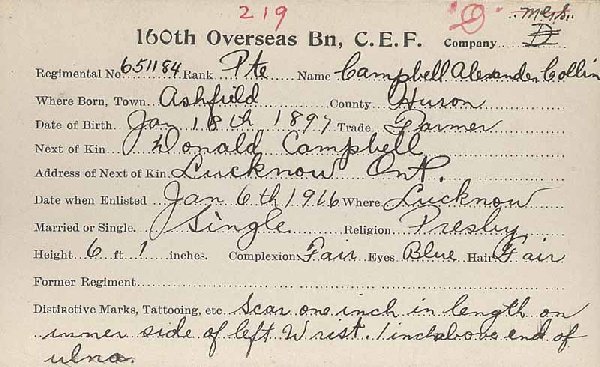 219
160th Overseas Bn, C.E.F. Company D
Regimental No. 651184 Rank Pte Name Campbell Alexander Collin
Where Born, Town Ashfield County Huron
Date of Birth. Jan 18th 1897 Trade Farmer
Next of Kin Donald Campbell
Address of Next of Kin Lucknow Ont.
Date when Enlisted Jan 6th 1916 Where Lucknow
Married or Single. Single Religion Presby
Height 6 ft 1 inches. Complexion Fair Eyes Blue Hair Fair
Former Regiment
Distinctive Marks, Tattooing, etc Scar one inch in length on
inner side of left Wrist. 1 inch above end of
ulna.